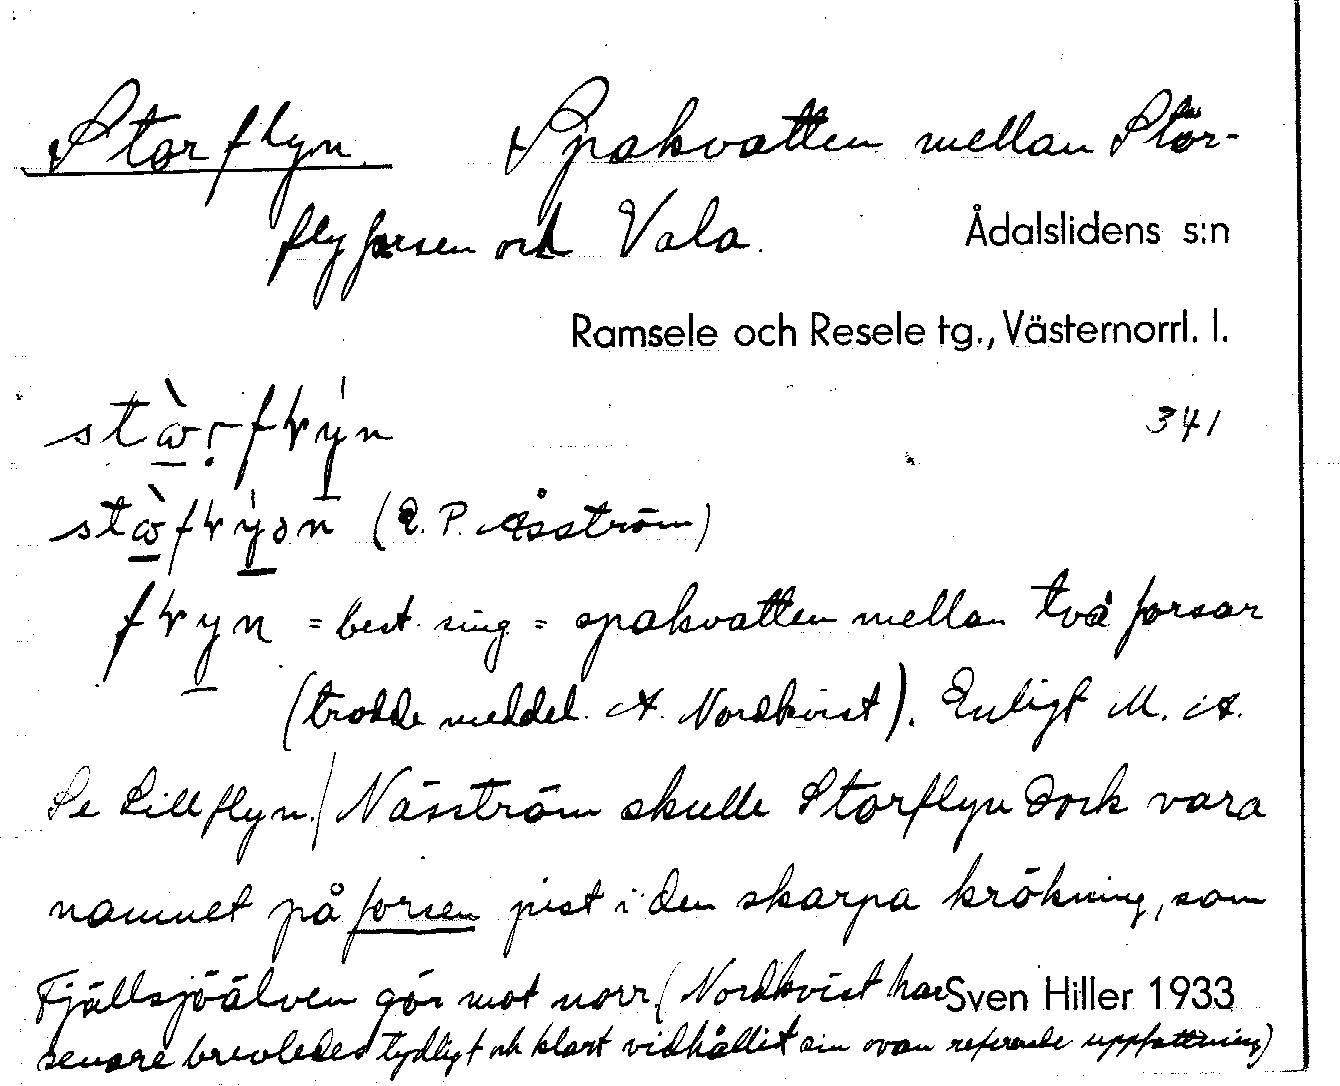 Storflyn. Spakvatten mellan Stor-
flyforsen och Vala.
Ådalslidens s:n
Ramsele och Resele tg., Västernorrl. l.
341
(E. P. Åsström)
= best. sing. = spakvatten mellan två forsar
(trodde meddel. A. Nordkvist). Enligt M. A.
Se Lillflyn./ Näsström skulle Storflyn dock vara
namnet på forsen just i den skarpa krökning, som
Fjällsjöälven gör mot norr. (Nordkvist har
Sven Hiller 1933
senare brevledes tydligt och klart vidhållit sin ovan refererade uppfattning)